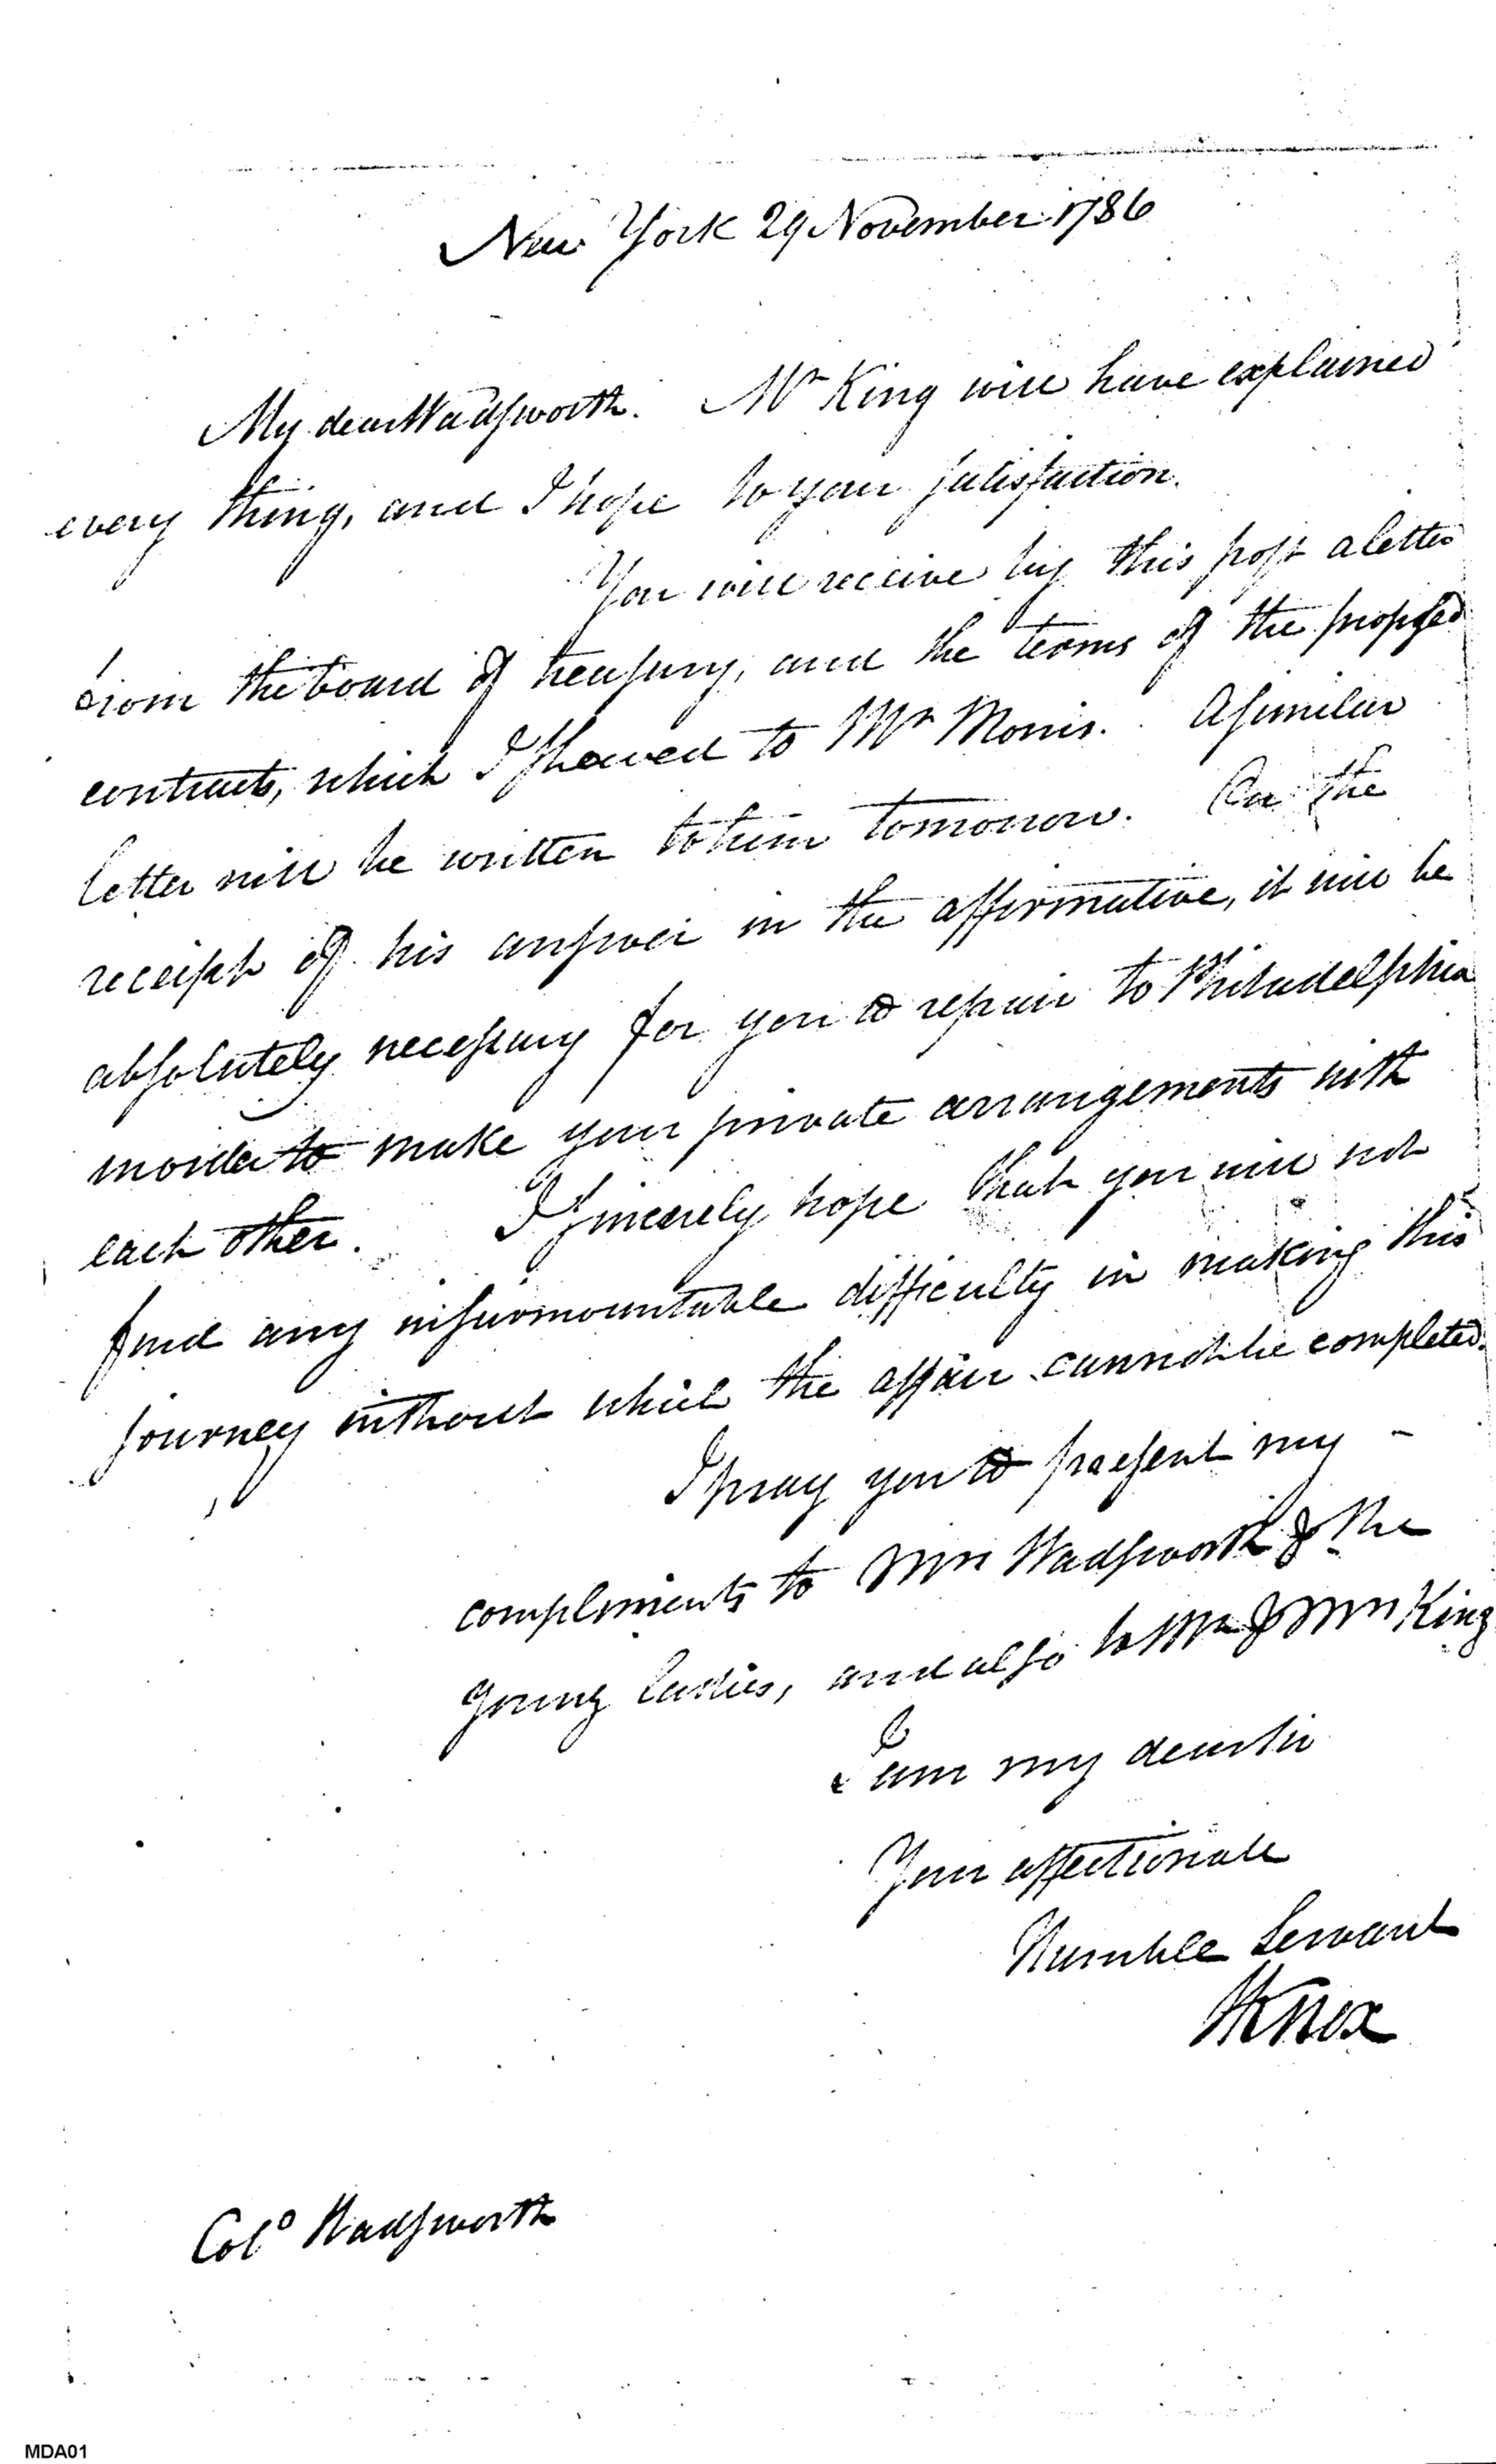 New York 29 November 1786
My dear Wadsworth. Mr King will have explained
every thing, and I hope to your satisfaction.
You will receive by this post a letter
from the board of treasury, and the terms of the proposed
contracts, which I shewed to Mr Morris. A similar
letter will be written to him tomorrow. On the
receipt of his answer in the affirmative, it will be
absolutely necessary for you to repair to Philadelphia
in order to make your private arrangements with
each other. I sincerely hope that you will not
find any insurmountable difficulty in making this
journey without which the affair cannot be completed.
I pray you to present my -
compliments to Mrs Wadsworth & the
young ladies, and also to Mr & Mrs King
I am my dear sir
Your affectionate
Humble Servant
HKnox
Colo Wadsworth
MDA01